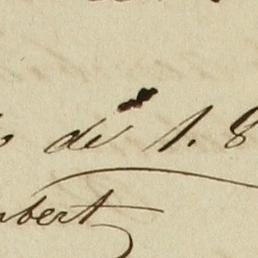 de 1. 8
bert